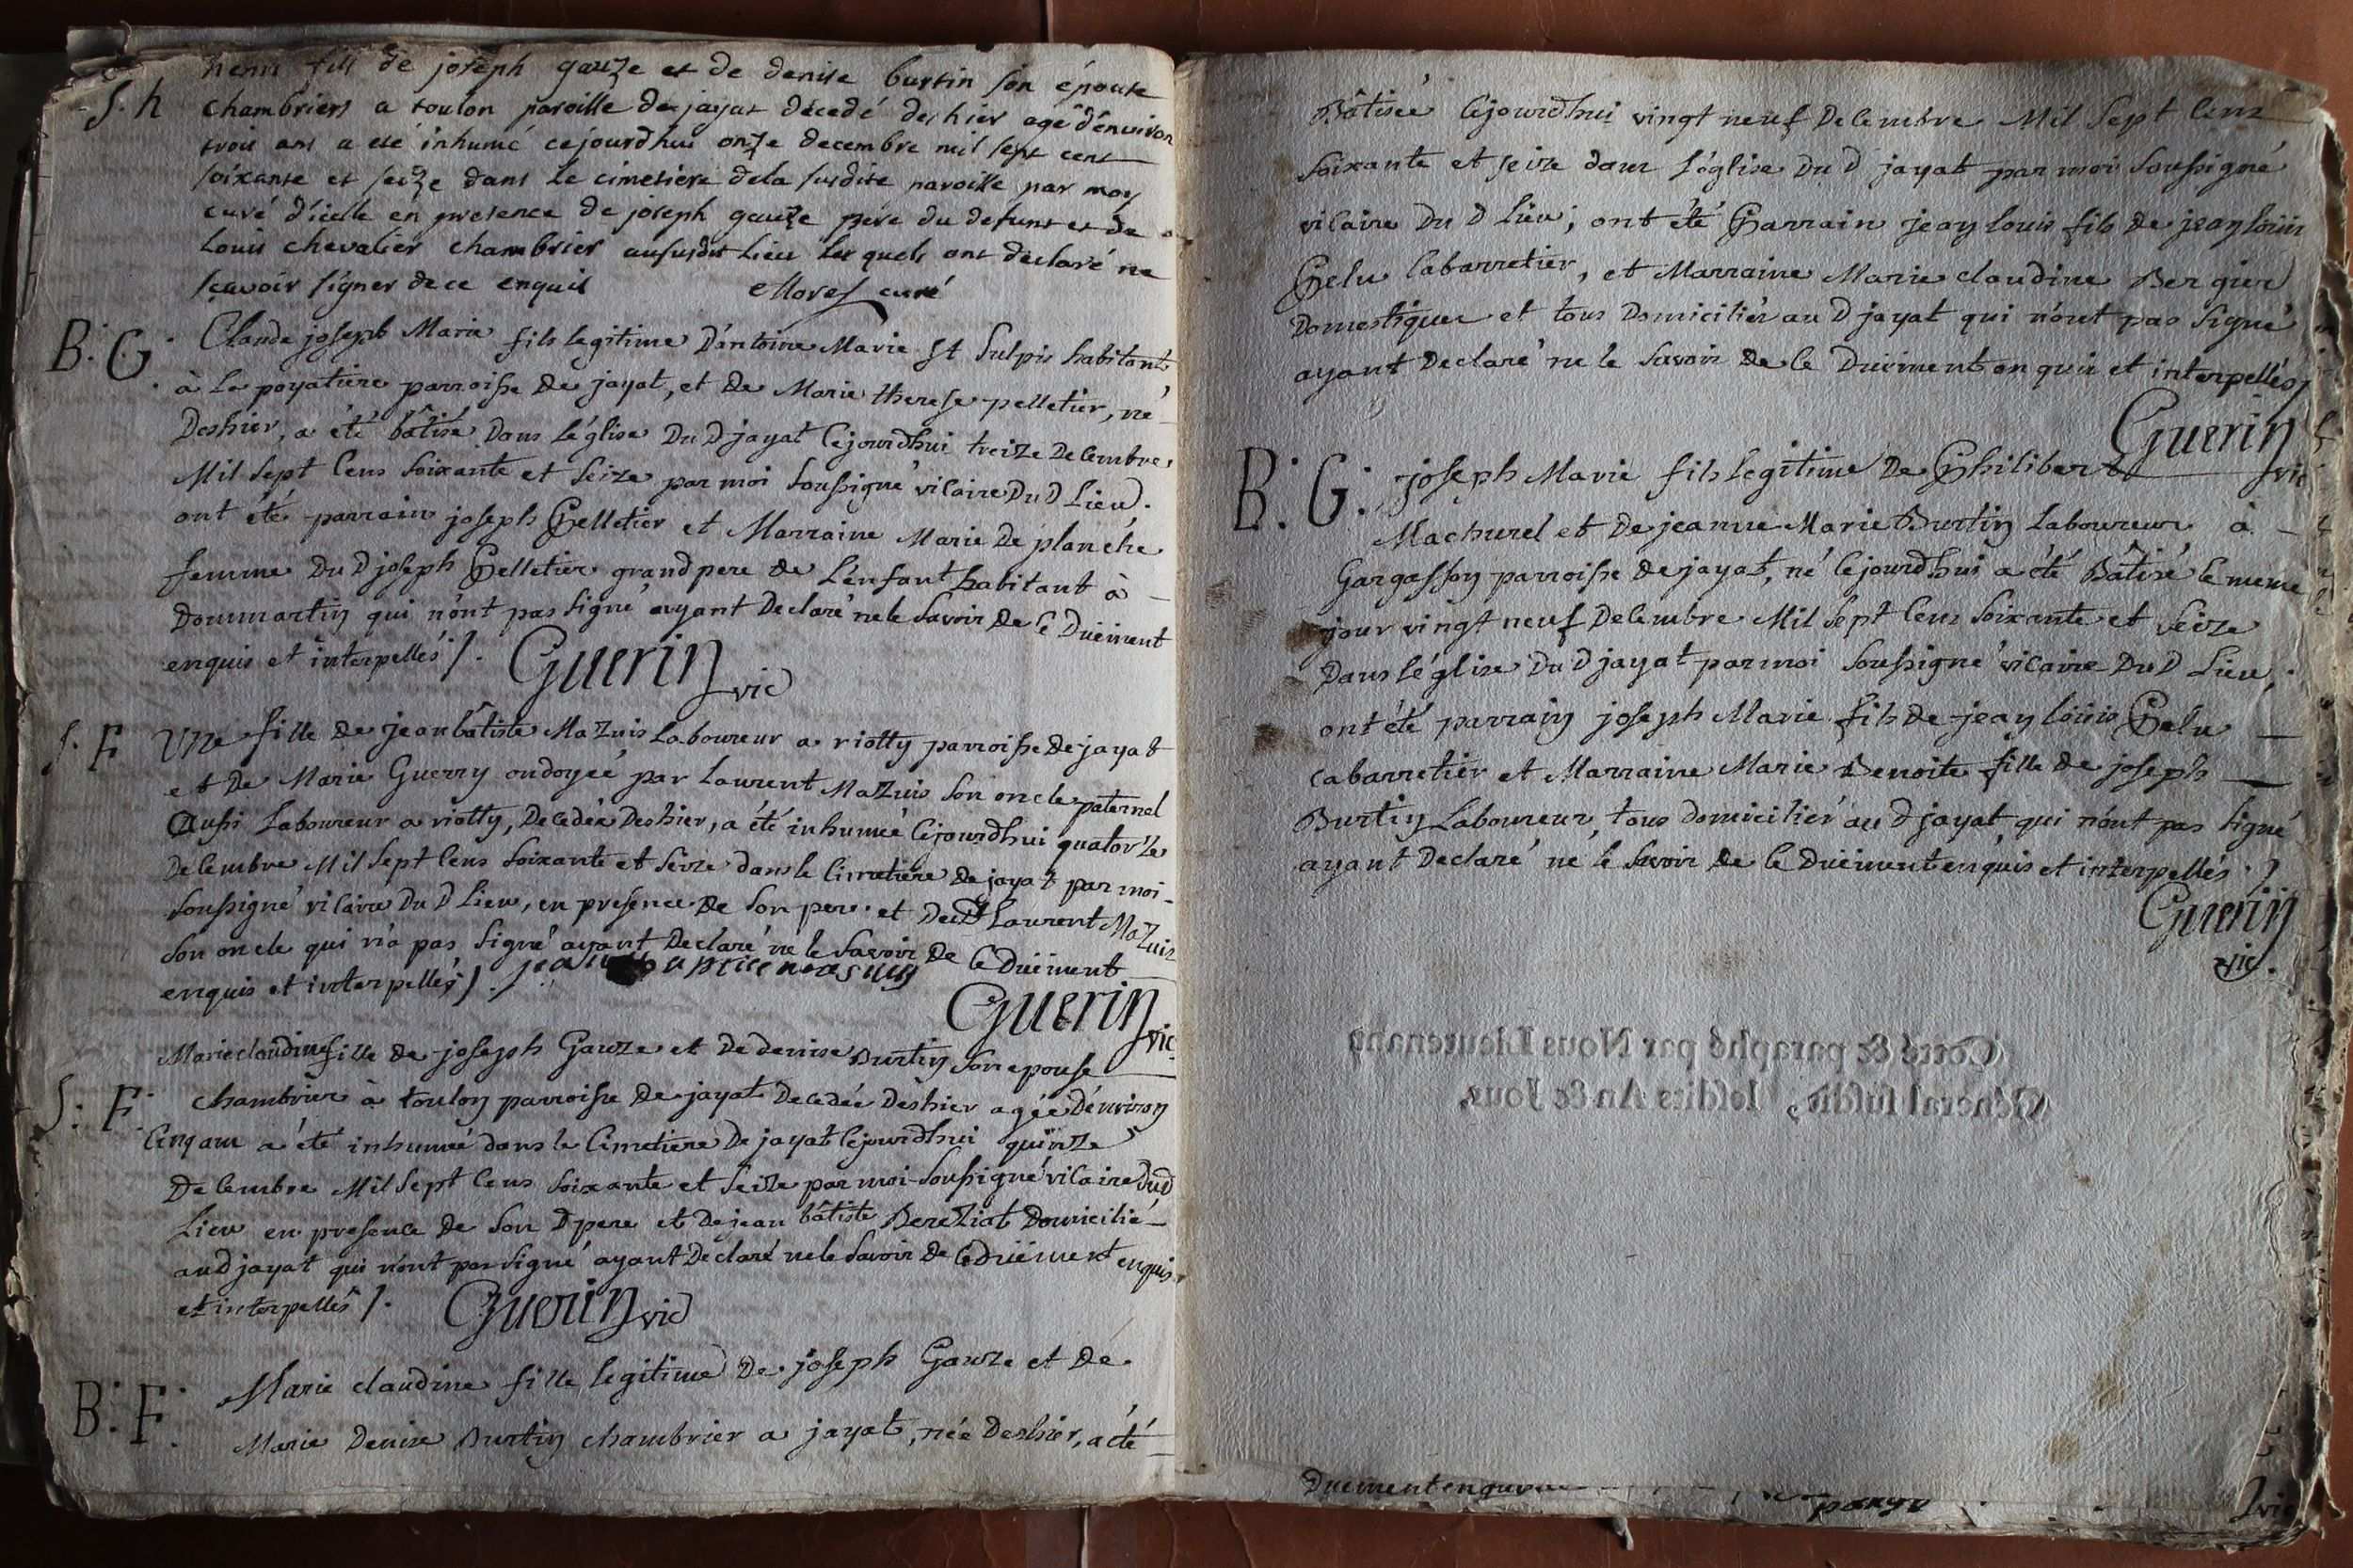 henri fils de joseph gauze et de denise burtin son épouse
S. h
chambriers a toulon paroisse de jayat décedé dès hier agé d'environ
trois ans a eté inhumé cejourdhui onze decembre mil sept cent
soixante et seize dans le cimetiere dela susdite paroisse par moy
curé d'icelle en presence de joseph gauze pére du defunt et de
louis chevalier chambrier aususdit lieu les quels ont déclaré ne
sçavoir signer de ce enquis curé
B: G:
Claude joseph Marie fils legitime D'antoine Marie St Sulpis habitant
à la poyatiere parroisse de jayat, et de Marie therese pelletier, né
Deshier, a été bâtisé Dans l'église Du D jayat Cejourdhui treize Decembre
Mil Sept Cens Soixante et Seize par moi Soussigné vicaire Du D Lieu.
ont été parrain joseph Pelletier et Marraine Marie De planche
femme Du D joseph Pelletier grand pere de L'enfant habitant à
Dommartin qui n'ont pas signé ayant Declaré nele Savoir De Ce Duëment
enquis et interpellés /.
Guerin vic
S. F
Une fille de jeanbâtiste Mazuis Laboureur a riotty parroisse de jayat
et De Marie Guerry ondoyée par Laurent Mazuis Son oncle paternel
Aussi Laboureur a riotty, Decedée Deshier, a été inhumée Cejourdhui quatorze
Decembre Mil Sept Cens Soixante et Seize dans le Cimetiere De jayat par moi
Soussigné vicaire Du D Lieu, en presence De Son pere et Dud Laurent Mazuis
Son oncle qui n'a pas Signé ayant Declaré ne le Savoir De Ce Duëment
enquis et interpellés /.
Guerin vic
Marie claudine fille de joseph Gauze et De denise Burtin Son epouse
S: F:
chambrier à toulon parroisse de jayat Decedée Dèshier agée D'environ
Cinq ans a été inhumée dans le Cimetiere De jayat Cejourdhui quinze
Decembre Mil Sept Cens Soixante et Seize par moi Soussigné vicaire Dud
Lieu en presence de Son D pere et De jean bâtiste Bereziat Domicilié
aud jayat qui n'ont pas Signé ayant Declaré nele Savoir de Ce Duëment enquis
et interpellés /.
Guerin vic
Marie claudine fille legitime De joseph Gauze et De
B: F:
Marie Denise Burtin chambrier a jayat, née Deshier, a été
Bâtisée Cejourdhui vingt neuf Decembre Mil Sept Cens
Soixante et seize dans l'église Du D jayat par moi Soussigné
vicaire Du D lieu; ont été Parrain jean louis fils de jean louis
Pelu Cabarretier, et Marraine Marie claudine Bergier
Domestique et tous Domiciliés au D jayat qui n'ont pas Signé
ayant Declaré ne le Savoir De Ce Duëment enquis et interpellés /
Guerin vic
B: G:
joseph Marie fils legitime De Philibert
Machurel et De jeanne Marie Burtin Laboureur à
Gargasson parroisse de jayat, né Cejourdhui a été Bâtisé le meme
jour vingt neuf Decembre Mil Sept Cens Soixante et Seize
Dans l'église Du D jayat par moi Soussigné vicaire Du D Lieu,
ont été parrain joseph Marie fils de jean louis Pelu
Cabarretier et Marraine Marie Benoite fille de joseph
Burtin Laboureur, tous domiciliés au D jayat, qui n'ont pas Signé
ayant Declaré ne le Savoir De Ce Duëment enquis et interpellés /
Guerin
vic.
Cotté & paraphé par Nous Lieutenant
Général susdit, lesdits An & Jour,
Duement enquis
vic